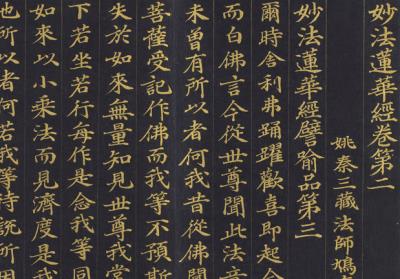 妙法蓮華經卷第二
姚秦三藏法師鳩
妙法蓮華經譬喻品第三
爾時舍利弗踊躍歡喜即起合
而白佛言今從世尊聞此法音
未曾有所以者何我昔從佛聞
菩薩受記作佛而我等不預斯
失於如來無量知見世尊我常
下若坐若行每作是念我等同
如來以小乘法而見濟度是我
也所以者何若我等待說所因